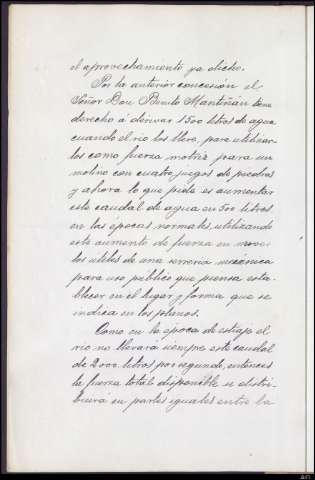 el aprovechamiento ya dicho.
Por la anterior concesión el
Señor Don Benito Mantiñán tiene
derecho á derivar 1500 litros de agua
cuando el rio los lleve, para utilizar-
los como fuerza motriz para un
molino con cuatro juegos de piedras
y ahora lo que pide es aumentar
este caudal de agua en 500 litros
en las épocas normales, utilizando
este aumento de fuerza en mover
los utiles de una serreria mecánica
para uso publico que piensa esta-
blecer en el lugar y forma que se
indica en los planos.
Como en la época de estiaje el
rio no llevará siempre este caudal
de 2000 litros por segundo, entonces
la fuerza total disponible se distri-
buirá en partes iguales entre la